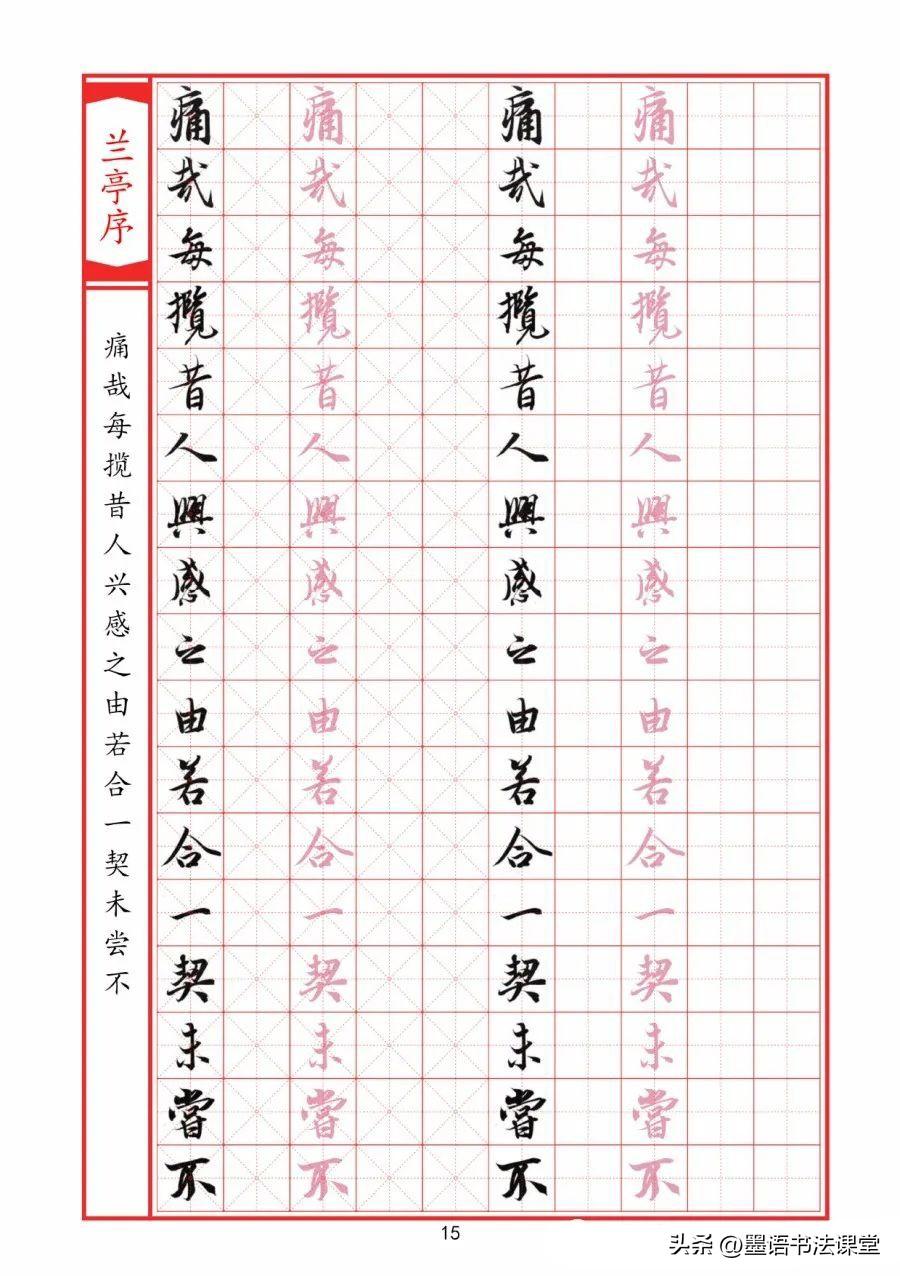 兰亭序
痛哉每揽昔人兴感之由若合一契未尝不
痛哉每攬昔人興感之由若合一契未嘗不
痛哉每攬昔人興感之由若合一契未嘗不
痛哉每攬昔人興感之由若合一契未嘗不
痛哉每攬昔人興感之由若合一契未嘗不
15
头条 @墨语书法课堂